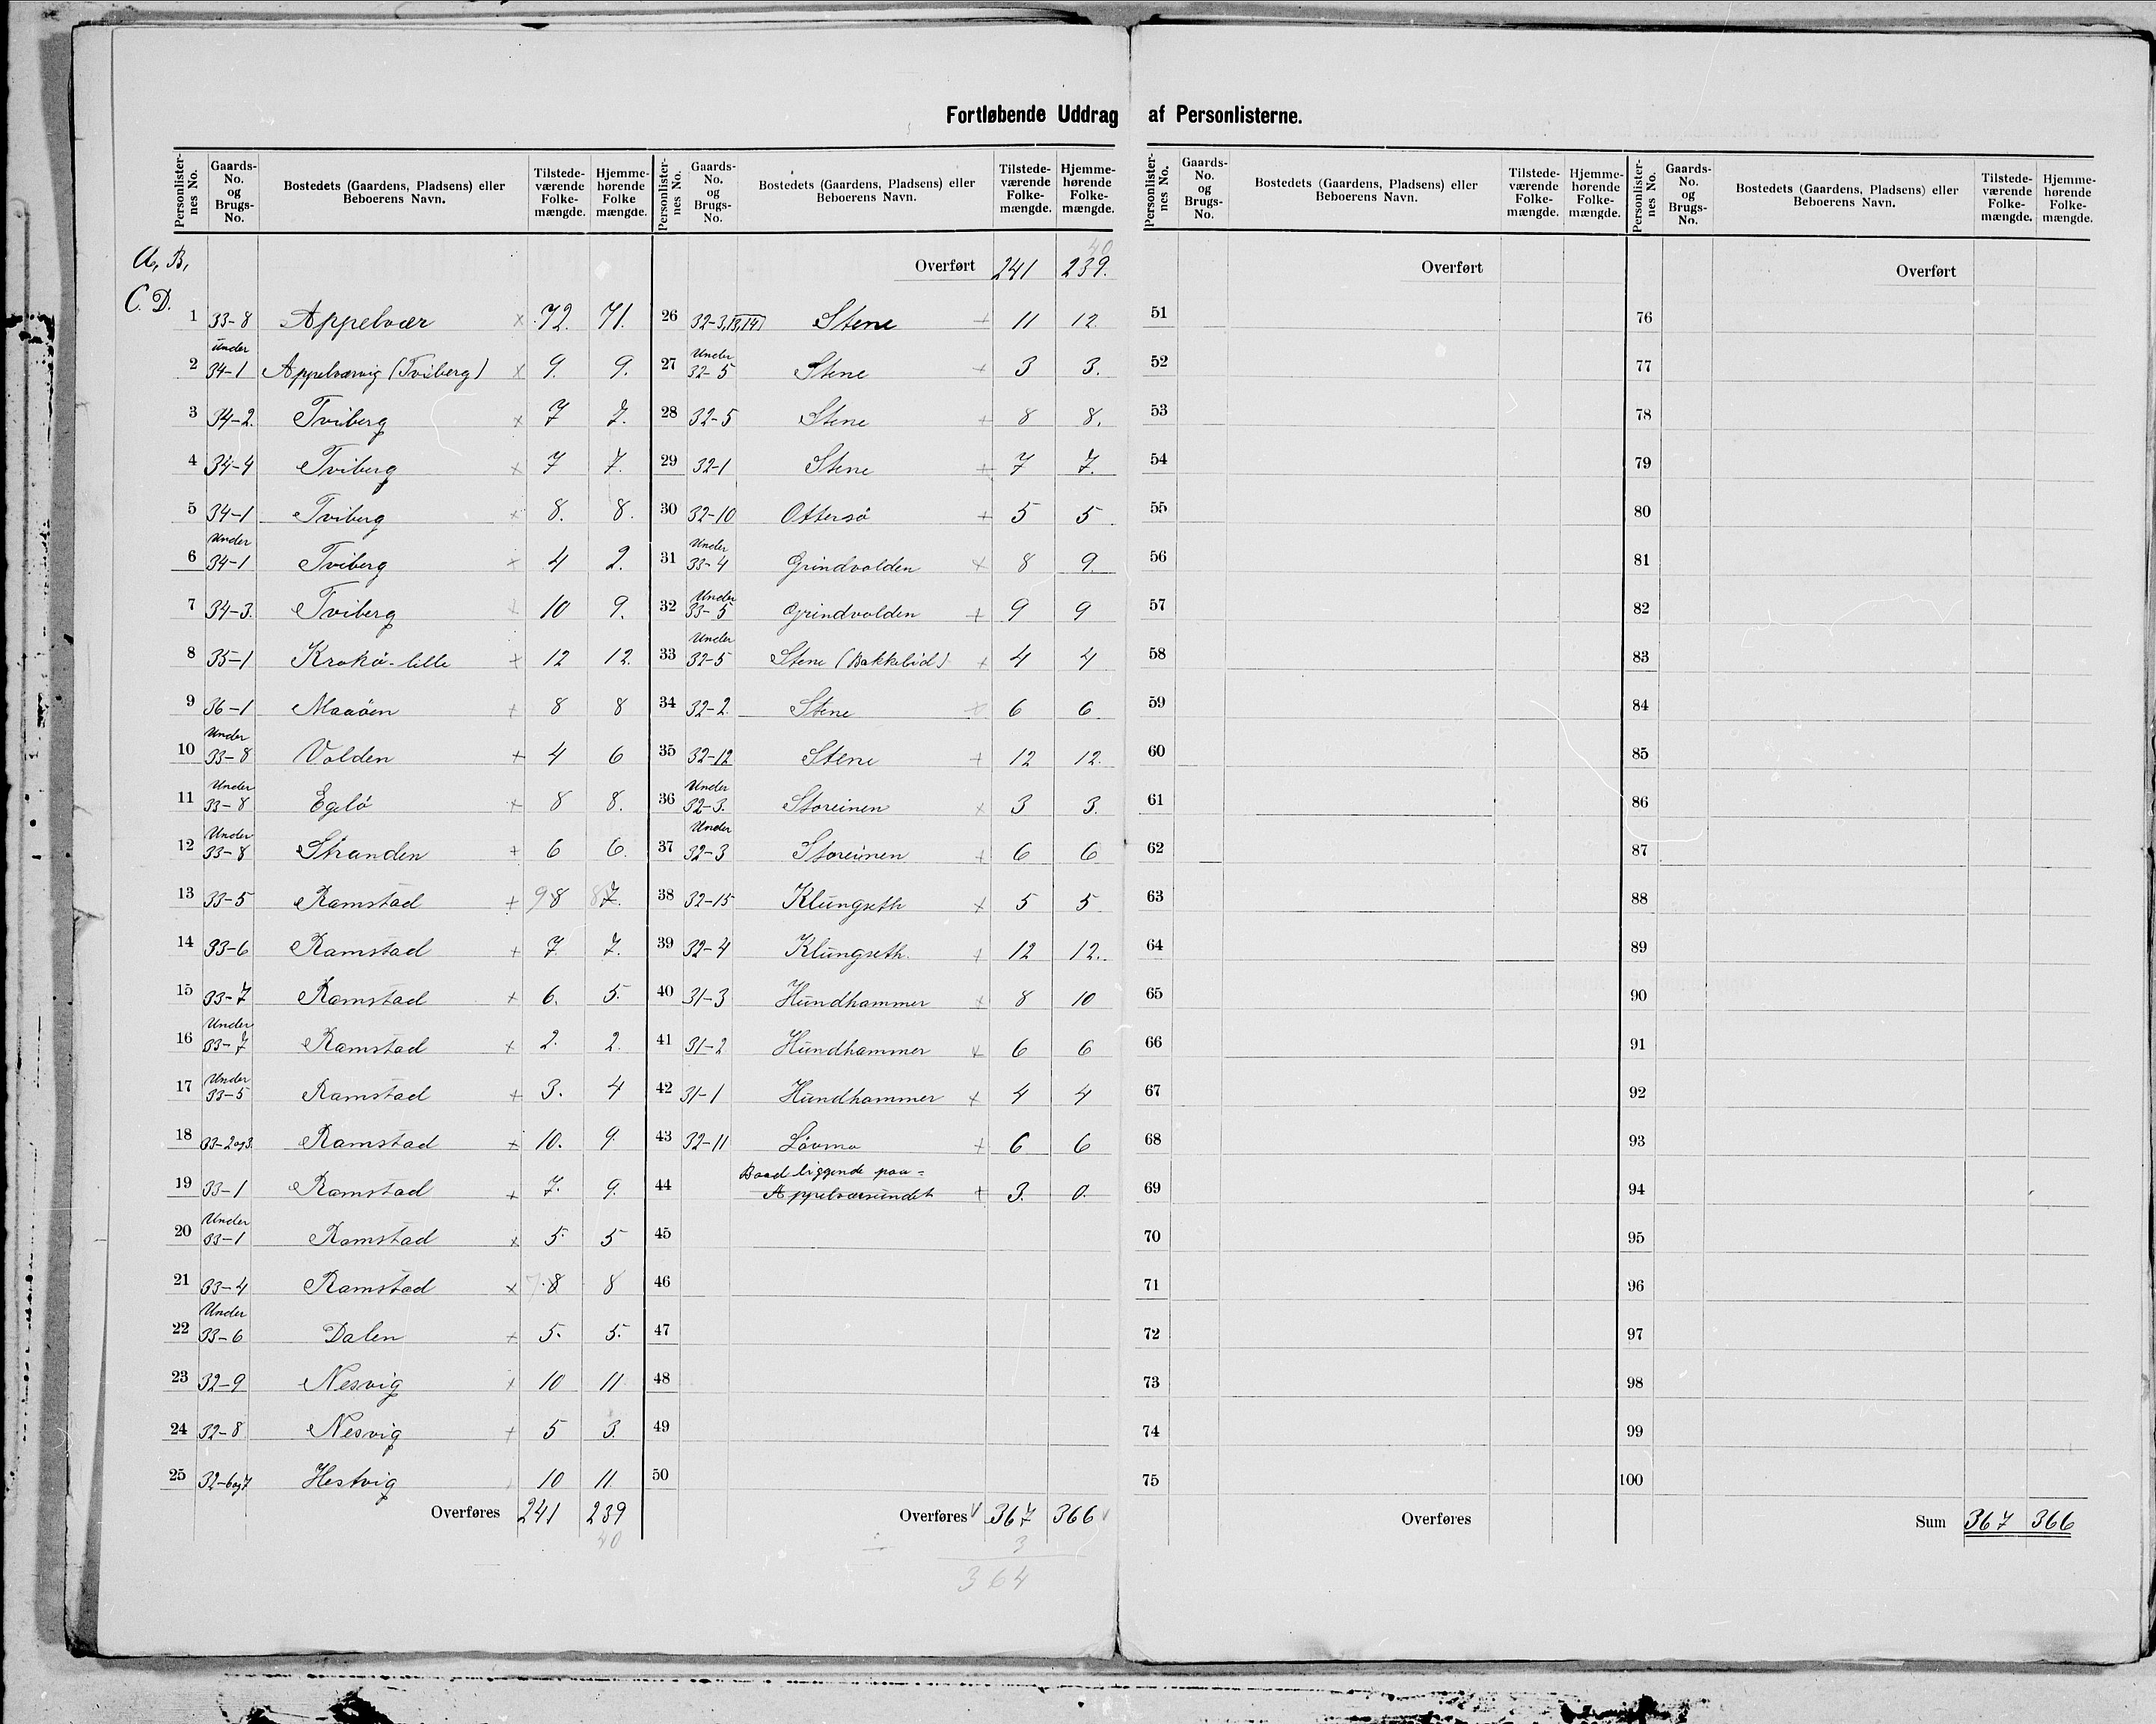 Fortløbende Uddrag af Personlisterne.
Personlister-nes No. Gaards-No. og Brugs-No. Bostedets (Gaardens, Pladsens) eller Beboerens Navn. Tilstede-værende Folke-mængde. Hjemme-hørende Folke mængde.
Personlister-nes No. Gaards-No. og Brugs-No. Bostedets (Gaardens, Pladsens) eller Beboerens Navn. Tilstede-værende Folke-mængde. Hjemme-hørende Folke-mængde.
A, B,
C. D.
1 33-8 Appelvær x 72. 71.
2 under 34-1 Appelværvig (Tviberg) x 9. 9.
3 34-2. Tviberg x 7 7.
4 34-4 Tviberg x 7 7.
5 34-1 Tviberg x 8. 8.
6 Under 34-1 Tviberg x 4 2.
7 34-3. Tviberg x 10 9.
8 35-1 Krokö-lille x 12 12.
9 36-1 Maaöen + 8 8
10 Under 33-8 Volden + 4 6
11 Under 33-8 Egelö + 8 8.
12 Under 33-8 Stranden + 6 6.
13 33-5 Ramstad + 9 8 8 7.
14 33-6 Ramstad + 7 7.
15 33-7 Ramstad x 6. 5.
16 Under 33-7 Ramstad x 2. 2.
17 Under 33-5 Ramstad + 3. 4
18 33-2og3. Ramstad x 10. 9.
19 33-1 Ramstad + 7. 9.
20 Under 33-1 Ramstad x 5. 5
21 33-4 Ramstad x 7 8 8
22 Under 33-6 Dalen x 5. 5.
23 32-9 Nesvig x 10 11
24 32-8 Nesvig + 5 3.
25 32-6og7 Hestvig 10 11.
Overføres 241 239
40
40
Overført 241 239.
26 32-3,13,14 Stene + 11 12.
27 Under 32-5 Stene + 3 3.
28 32-5 Stene + 8 8.
29 32-1 Stene + 7 7.
30 32-10 Ottersö + 5 5
31 Under 33-4 Grindvolden x 8 9.
32 Under 33-5 Grindvolden + 9 9
33 Under 32-5 Stene (Bakkelid) + 4 4
34 32-2. Stene x 6 6
35 32-12 Stene + 12 12.
36 Under 32-3. Storeinen x 3 3.
37 Under 32-3 Storeinen + 6 6
38 32-15 Klungseth x 5 5
39 32-4 Klungseth. + 12 12.
40 31-3 Hundhammer x 8 10
41 31-2 Hundhammer x 6 6
42 31-1 Hundhammer x 4 4
43 32-11 Lövmo + 6 6
44 Baad liggende paa=
Appelværsundet + 3. 0.
45
46
47
48
49
50
Overføres 367 366
3
364
Personlister-nes No. Gaards-No. og Brugs-No. Bostedets (Gaardens, Pladsens) eller Beboerens Navn. Tilstede-værende Folke-mængde. Hjemme-hørende Folke-mængde.
Overført
51
52
53
54
55
56
57
58
59
60
61
62
63
64
65
66
67
68
69
70
71
72
73
74
75
Overføres
Personlister-nes No. Gaards-No. og Brugs-No. Bostedets (Gaardens, Pladsens) eller Beboerens Navn. Tilstede-værende Folke-mængde. Hjemme-hørende Folke-mængde.
Overført
76
77
78
79
80
81
82
83
84
85
86
87
88
89
90
91
92
93
94
95
96
97
98
99
100
Sum 367 366